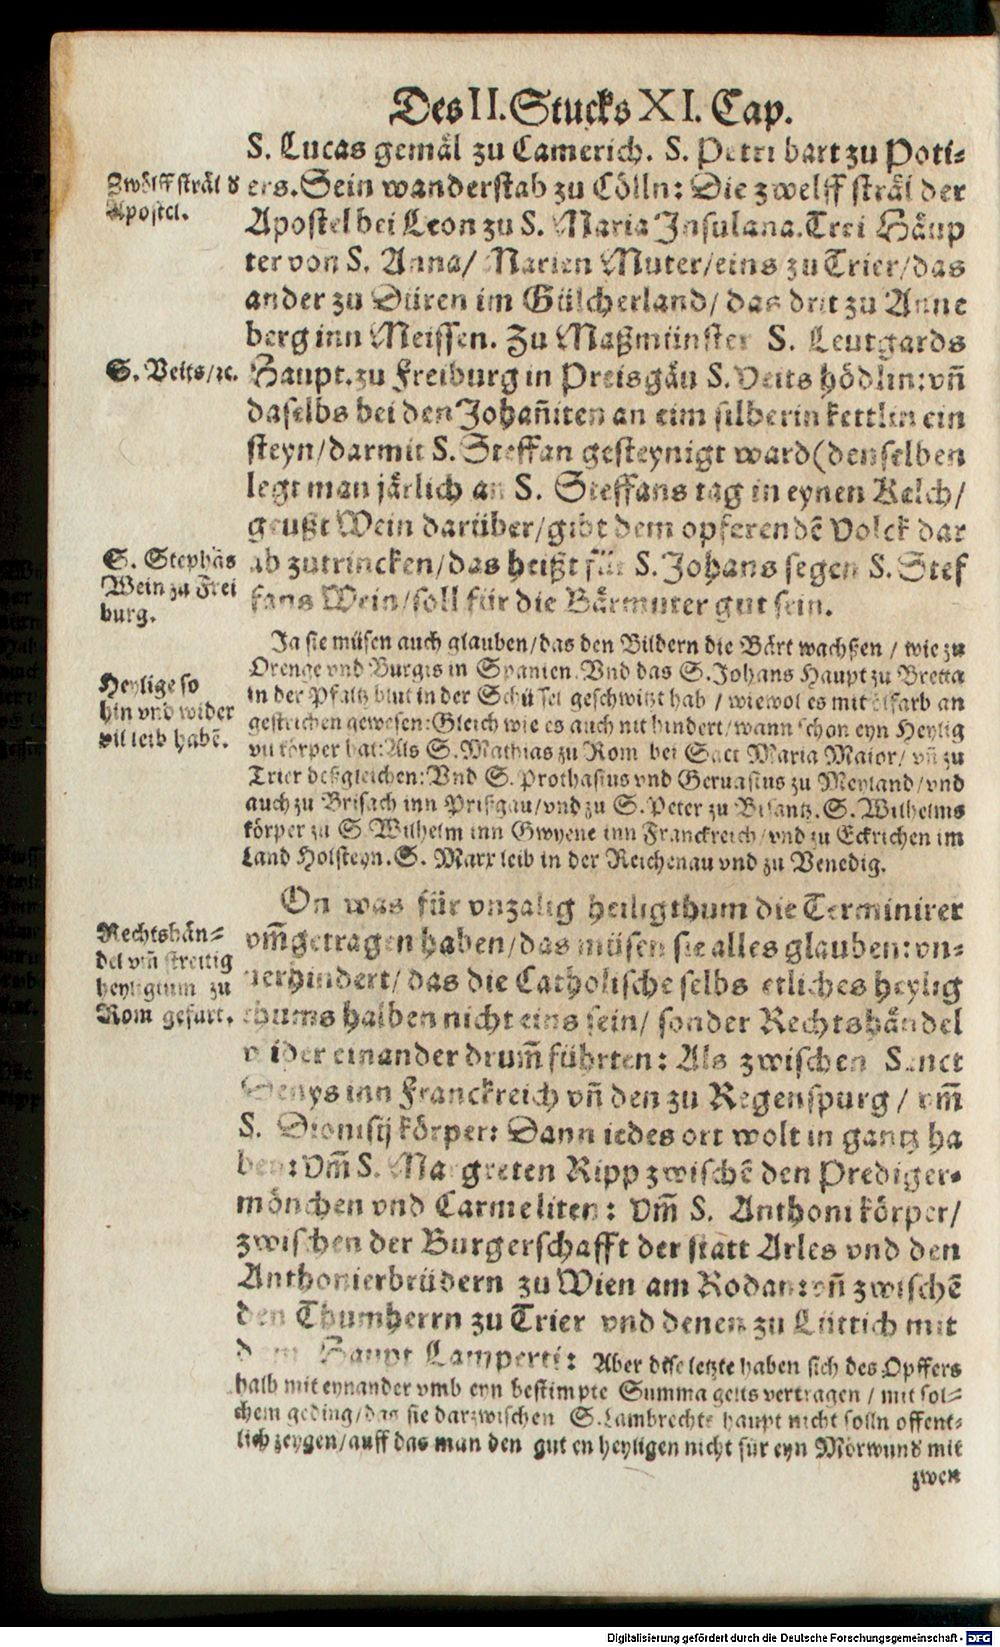 Des II. Stucks XI. Cap.
S. Lucas gemäl zu Camerich. S. Petri bart zu Poti-
ers. Sein wanderstab zu Cölln: Die zwelff sträl der
Apostel bei Leon zu S. Maria Insulana. Trei Häup
ter von S. Anna/ Marien Muter/eins zu Trier/das
ander zu Düren im Gülcherland/ das drit zu Anne
berg inn Meissen. Zu Maßmünster S. Leutgards
Haupt. zu Freiburg in Preisgäu S. Veits hödlin: vñ
daselbs bei den Johañiten an eim silberin kettlin ein
steyn/darmit S. Steffan gesteynigt ward (denselben
legt man järlich an S. Steffans tag in eynen Kelch/
geußt Wein darüber/gibt dem opferendē Volck dar
ab zutrincken/das heißt für S. Johans segen S. Stef
fans Wein/soll für die Bärmuter gut sein.
Zwölff sträl d
Apostel.
S. Veits/ꝛc.
S. Stephās
Wein zu Frei
burg.
Ja sie müsen auch glauben/das den Bildern die Bärt wachßen / wie zu
Orenge vnd Burgis in Spanien. Vnd das S. Johans Haupt zu Bretta
in der Pfaltz blut in der Schüssel geschwitzt hab / wiewol es mit ölfarb an
gestrichen gewesen: Gleich wie es auch nit hindert/wann schon eyn Heylig
vil körper hat: Als S. Mathias zu Rom bei Sact Maria Maior/ vñ zu
Trier deßgleichen: Vnd S. Prothasius vnd Geruasius zu Meyland/vnd
auch zu Brisach inn Prißgau/vnd zu S. Peter zu Bisantz. S. Wilhelms
körper zu S. Wilhelm inn Gwyene inn Franckreich/vnd zu Eckrichen im
Land Holsteyn. S. Marx leib in der Reichenau vnd zu Venedig.
Heylige so
hin vnd wider
vil leib habē.
On was für vnzalig heiligthum die Terminirer
vm̄getragen haben/das müsen sie alles glauben: vn-
uerhindert/ das die Catholische selbs etliches heylig
thums halben nicht eins sein/ sonder Rechtshändel
wider einander drum̄ führten: Als zwischen Sanct
Denys inn Franckreich vñ den zu Regenspurg / vm̄
S. Dionisij körper: Dann iedes ort wolt in gantz ha
ben: Vm̄ S. Margreten Ripp zwischē den Prediger-
mönchen vnd Carmeliten: Vm̄ S. Anthoni körper/
zwischen der Burgerschafft der statt Arles vnd den
Anthonierbrüdern zu Wien am Rodan: vñ zwischē
den Thumherrn zu Trier vnd denen zu Lüttich mit
dem Haupt Lamperti: Aber dise letzte haben sich des Opffers
halb mit eynander vmb eyn bestimpte Summa gelts vertragen / mit sol-
chem geding/das sie darzwischen S. Lambrechts haupt nicht solln offent-
lich zeygen/auff das man den guten heyligen nicht für eyn Mörwund mit
zwen
Rechtshän-
del vm̄ streitig
heyligtum zu
Rom gefürt.
Digitalisierung gefördert durch die Deutsche Forschungsgemeinschaft - DFG